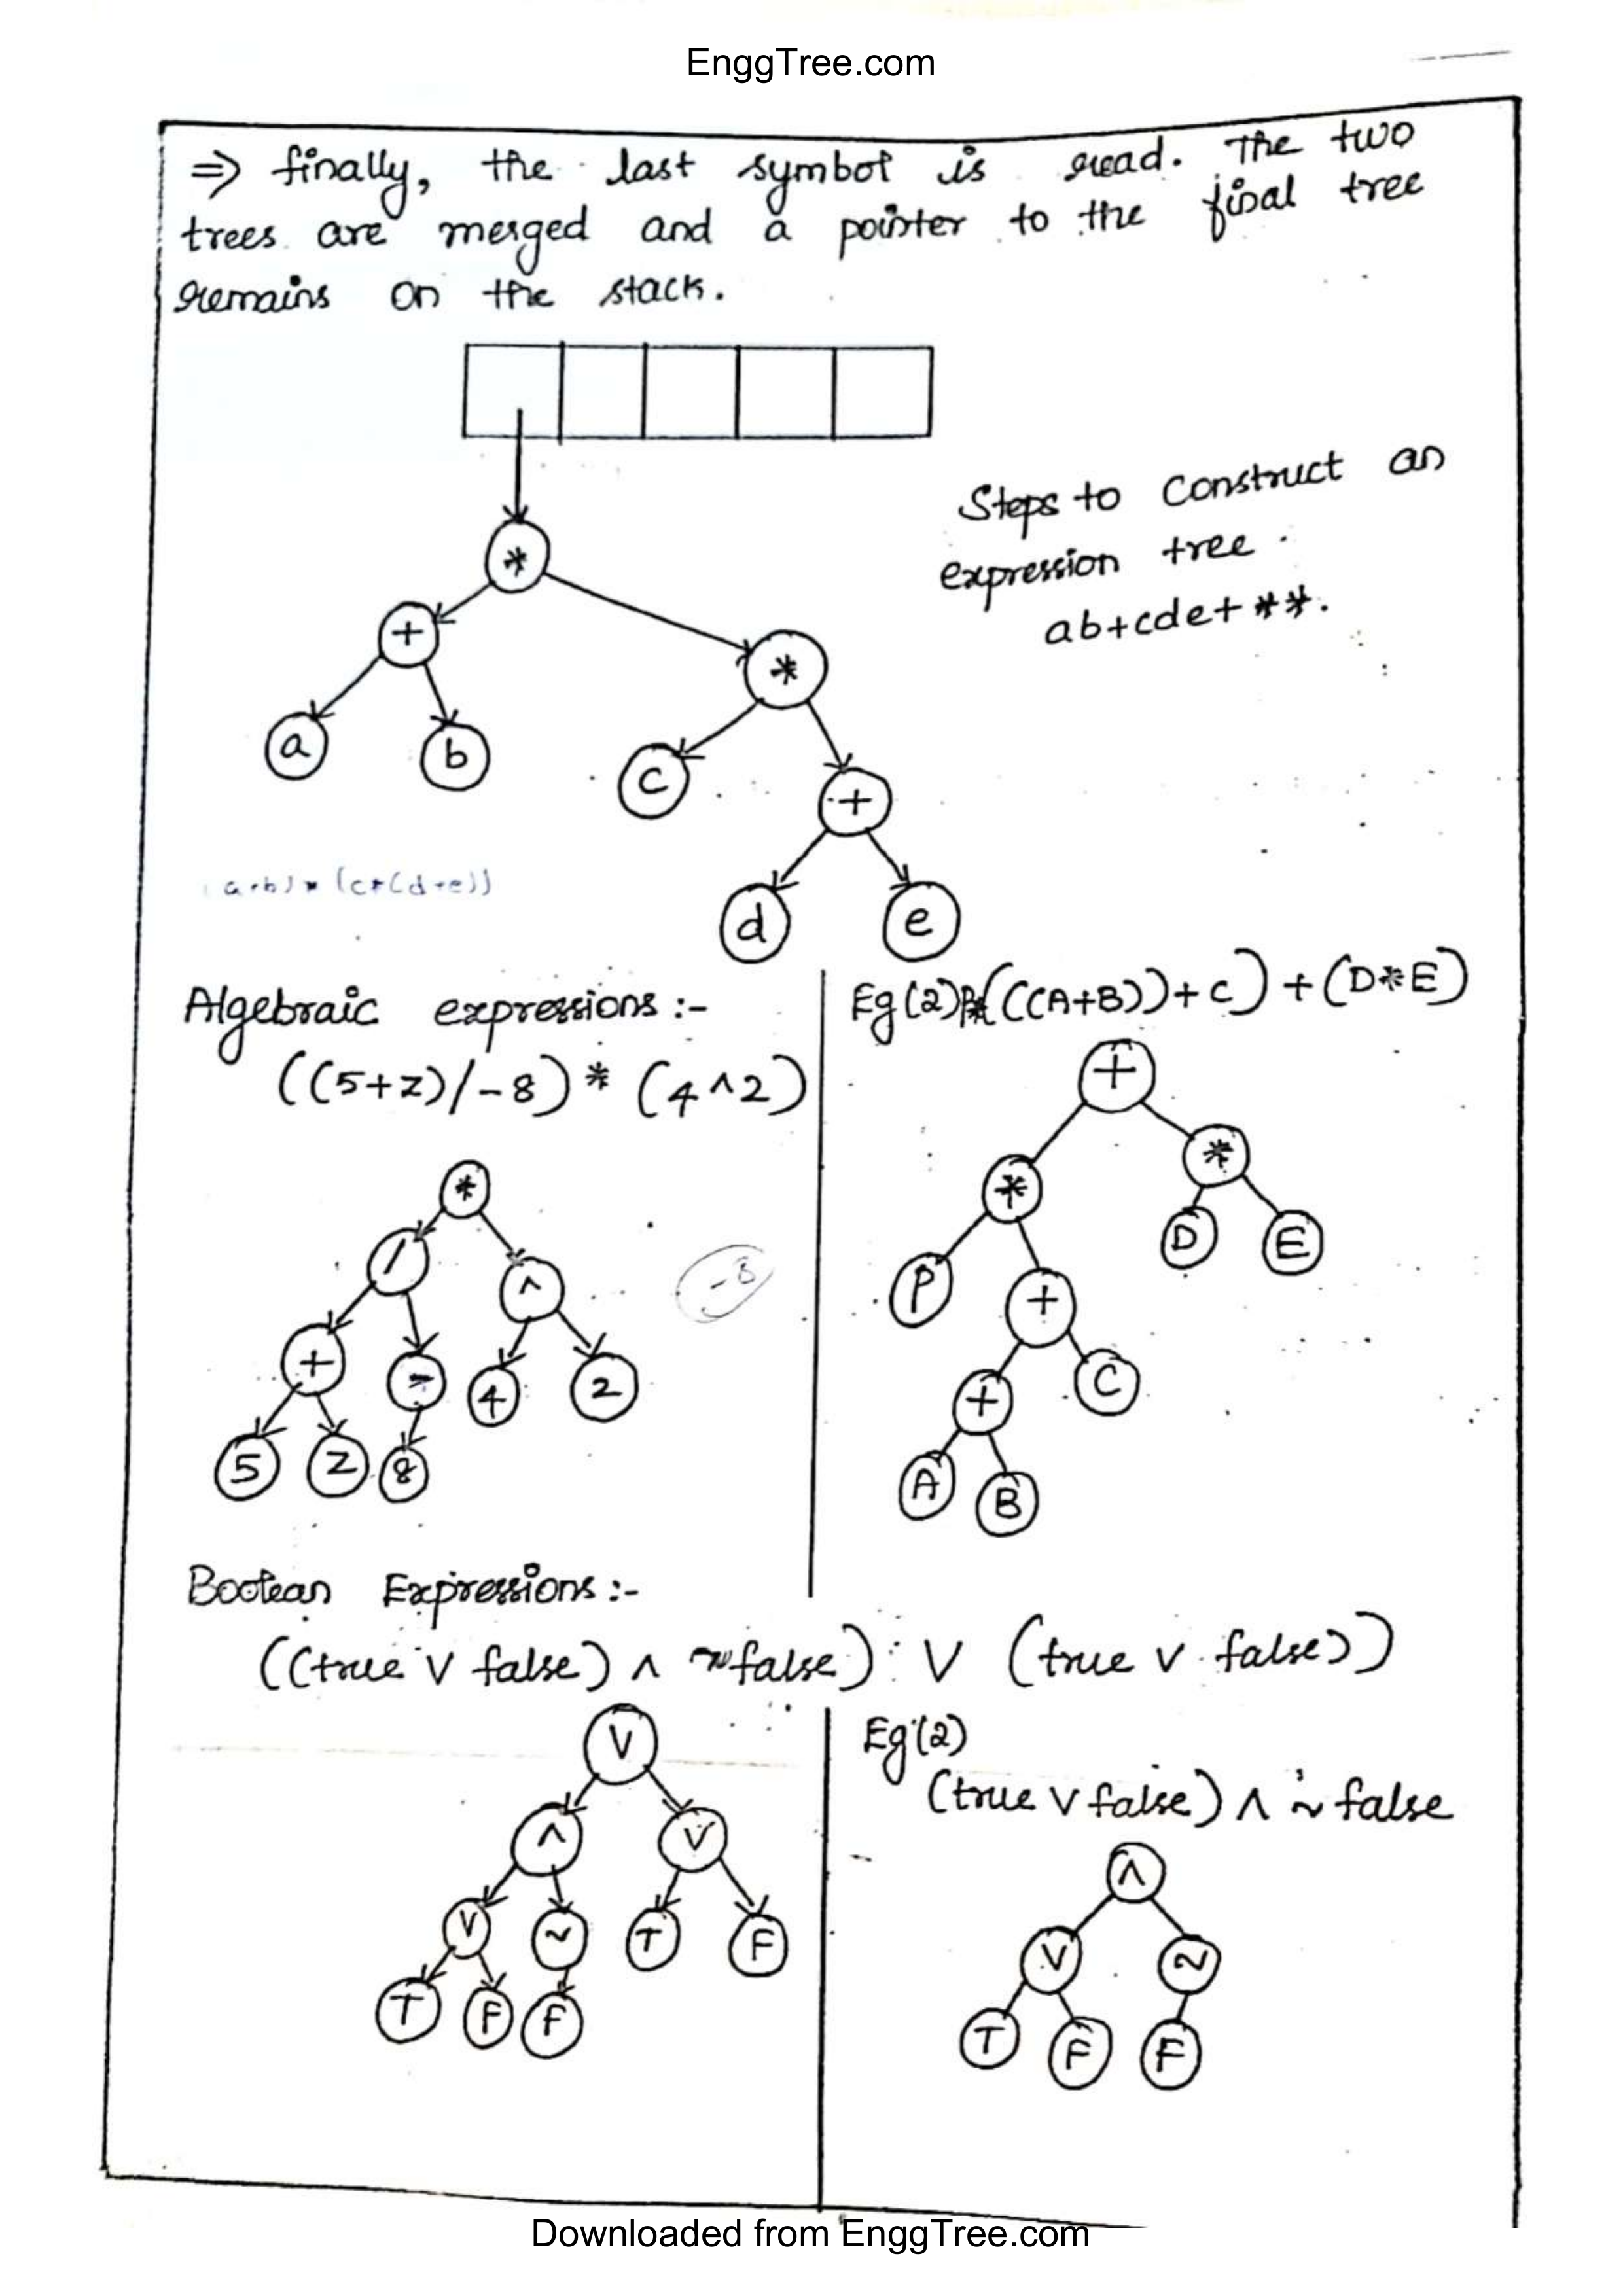 EnggTree.com
⇒ finally, the last symbol is read. The two
trees are merged and a pointer to the final tree
remains on the stack.
*
+
*
a
b
c
+
d
e
Steps to Construct an
expression tree.
ab+cde+**.
(a+b)*(c*(d+e))
Algebraic expressions :-
((5+z)/-8) * (4^2)
*
/
^
+
-
4
2
5
z
8
-8
Eg(2) ((A+B))+C) + (D*E)
+
*
*
P
+
D
E
+
C
A
B
Boolean Expressions :-
((true ∨ false) ∧ ~false) ∨ (true ∨ false))
∨
∧
∨
∨
~
T
F
T
F
F
Eg(2)
(true ∨ false) ∧ ~ false
∧
∨
~
T
F
F
Downloaded from EnggTree.com